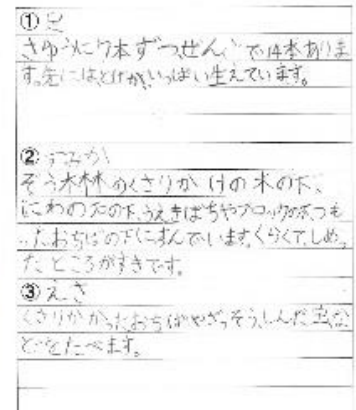 ①足
さゆうに7本ずつ、ぜんぶで14本ありま
す。先にはとげが、いっぱい生えています。
②すみか
ぞう木林のくさりかけの木の下、
にわの石の下、うえきばちやブロックの下、つも
ったおちばの下にすんでいます。くらくて、しめっ
たところがすきです。
③えさ
くさりかかったおちばやざっそう、しんだ虫な
どをたべます。